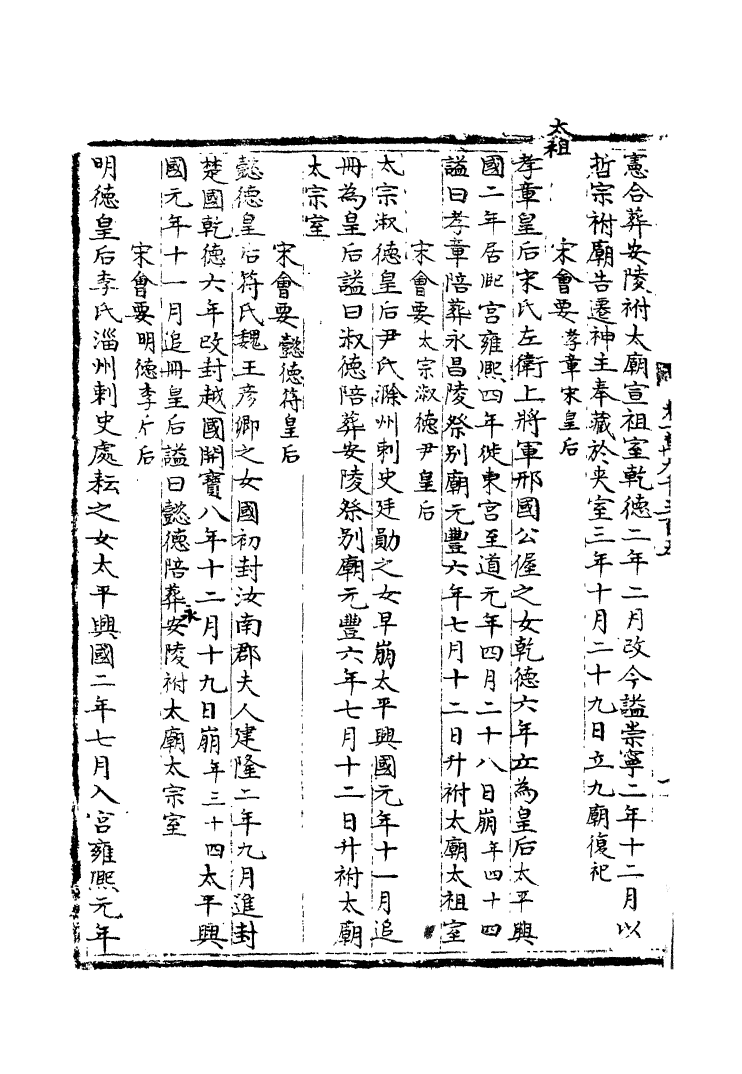 憲合葬安陵祔太廟宣祖室乾德二年二月改今謚崇寧二年十二月以
哲宗祔廟告遷神主奉藏於夾室三年十月二十九日立九廟復祀
宋會要 孝章宋皇后
太祖
孝章皇后宋氏左衛上將軍邢國公偓之女乾德六年立為皇后太平興
國二年居西宮雍熙四年徙東宮至道元年四月二十八日崩年四十四
謚曰孝章陪葬永昌陵祭别廟元豐六年七月十二日升祔太廟太祖室
宋會要 太宗淑德尹皇后
太宗淑德皇后尹氏滁州刺史廷勛之女早崩太平興國元年十一月追
冊為皇后謚曰淑德陪葬安陵祭别廟元豐六年七月十二日升祔太廟
太宗室
宋會要 懿德符皇后
懿德皇后符氏魏王彦卿之女國初封汝南郡夫人建隆二年九月進封
楚國乾德六年改封越國開寶八年十二月十九日崩年三十四太平興
國元年十一月追冊皇后謚曰懿德陪葬永安陵祔太廟太宗室
宋會要 明德李皇后
明德皇后李氏淄州刺史處耘之女太平興國二年七月入宮雍熙元年